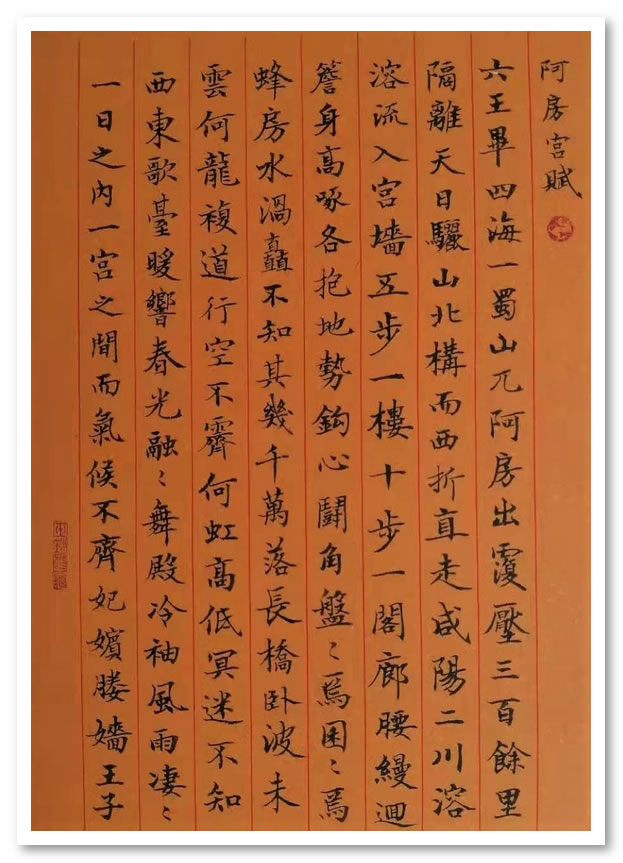 阿房宮賦
六王畢四海一蜀山兀阿房出覆壓三百餘里
隔離天日驪山北構而西折直走咸陽二川溶
溶流入宮墻五步一樓十步一閣廊腰縵迴
簷身高啄各抱地勢鈎心鬪角盤〻焉囷〻焉
蜂房水渦矗不知其幾千萬落長橋卧波未
雲何龍複道行空不霽何虹高低冥迷不知
西東歌臺暖響春光融〻舞殿冷袖風雨凄〻
一日之内一宮之間而氣候不齊妃嬪媵嬙王子